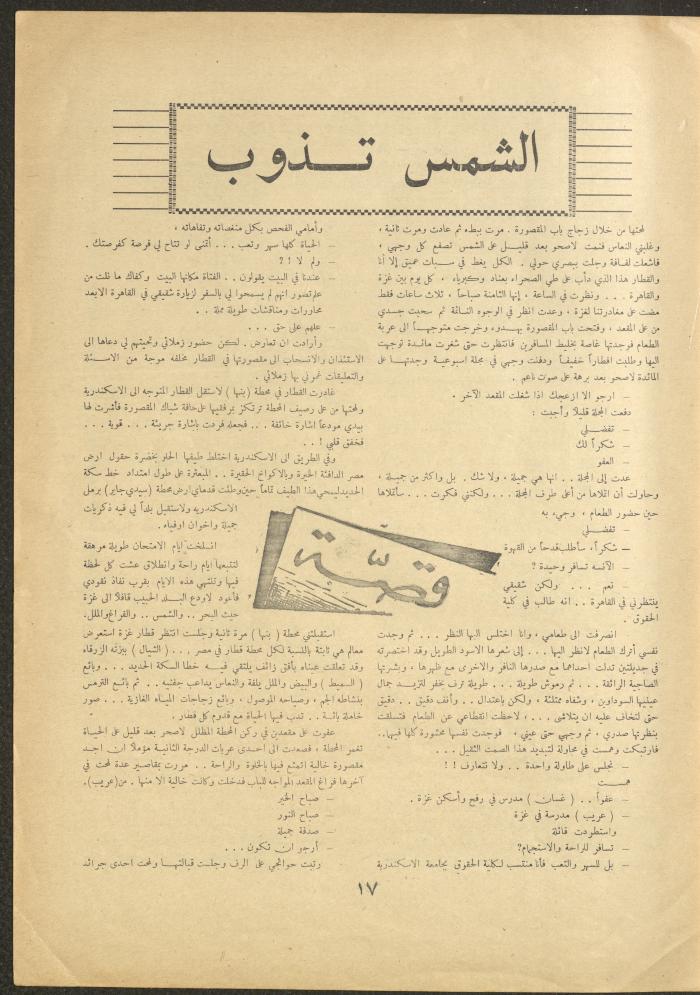 الشمس تذوب
لمحتها من خلال زجاج باب المقصورة . مرت ببطء ثم عادت ومرت ثانية ،
وغلبني النعاس فنمت لاصحو بعد قليل على الشمس تصفع كل وجهي ،
فاشعلت لفافة وجلت ببصري حولي . الكل يغط في سبات عميق إلا أنا
والقطار هذا الذي دأب على طي الصحراء بعناد وكبرياء ، كل يوم بين غزة
والقاهرة . . . ونظرت في الساعة ، إنها الثامنة صباحاً ، ثلاث ساعات فقط
مضت على مغادرتنا لغزة ، وعدت انظر في الوجوه النائمة ثم سحبت جسدي
من على المقعد ، وفتحت باب المقصورة بهدوء وخرجت متوجهاً الى عربة
الطعام فوجدتها غاصة بخليط المسافرين فانتظرت حتى شغرت مائدة توجهت
اليها وطلبت افطاراً خفيفاً ودفنت وجهي في مجلة اسبوعية وجدتها على
المائدة لاصحو بعد برهة على صوت ناعم .
– ارجو الا ازعجك اذا شغلت المقعد الآخر .
دفعت المجلة قليلاً وأجبت :
– تفضلي
– شكراً لك
– العفو
عدت إلى المجلة . . انها هي جميلة ، ولا شك . بل واكثر من جميلة ،
وحاولت أن اتلاها من أعلى طرف المجلة . . . ولكنني فكرت . . . سأتلاها
حين حضور الطعام ، وجيء به
– تفضلي
– شكراً ، سأطلب قدحاً من القهوة
– الآنسه تسافر وحيدة ?
نعم . . . ولكن شقيقي
ينتظرني في القاهرة . . انه طالب في كلية
الحقوق .
انصرفت الى طعامي ، وانا اختلس اليها النظر . . . ثم وجدت
نفسي أترك الطعام لانظر اليها . . . إلى شعرها الاسود الطويل وقد اختصرته
في جديلتين تدلت احداهما مع صدرها النافر والاخرى مع ظهرها ، وبشرتها
الصاحبة الرائقة . . . ثم رموش طويلة . . . طويلة ترف خفر لتزيد جمال
عينيها السوداوين ، وشفاه ممتلئة ، ولكن باعتدال . . وأنف دقيق . . دقيق
حتى لتخاف عليه ان يتلاشى . . . لاحظت انقطاعي عن الطعام فتسلقت
بنظرتها صدري ، ثم وجهي حتى عيني ، فوجدت نفسها محشورة كلها فيهما..
فارتبكت وهمست في محاولة لتبديد هذا الصمت الثقيل . . .
– نجلس على طاولة واحدة . . ولا نتعارف ! !
همست
– عفواً . . ( غسان ) مدرس في رفح وأسكن غزة .
– ( عريب ) مدرسة في غزة
واستطردت قائلة
– تسافر للراحة والاستجمام?
– بل للسهر والتعب فأنا منتسب لكلية الحقوق بجامعة الاسكندرية
وأمامي الفحص بكل منغصاته وتفاهاته ،
– الحياة كلها سهر وتعب . . . أتمنى لو تتاح لي فرصة كفرصتك .
– ولم لا ! ?
– عندنا في البيت يقولون . . الفتاة مكانها البيت وكفاك ما نلت من
علم تصور انهم لم يسمحوا لي بالسفر لزيارة شقيقي في القاهرة الا بعد
محاورات ومناقشات طويلة مملة . .
– علهم على حق . . .
وأرادت ان تعارض . لكن حضور زملائي وتحيتهم لي دعاها الى
الاستئذان والانسحاب الى مقصورتها في القطار مخلفه موجة من الاسئلة
والتعليقات غمرني بها زملائي .
غادرت القطار في محطة (بنها ) لاستقل القطار المتوجه الى الاسكندرية
ولمحتها من على رصيف المحطة ترتكز بمرفقيها على حافة شباك المقصورة فأشرت لها
بيدي مودعاً اشارة خائفة . . . فجعله فردت باشارة جريئة . . . قوية . . .
فخفق قلبي ! . .
وفي الطريق الى الاسكندرية اختلط طيفها الحلو بخضرة حقول ارض
مصر الدافئة الخيرة وبالاكواخ الحقيرة . . المبعثرة على طول امتداد خط سكة
الحديد ليمحي هذا الطيف تماماً حين وطئت قدماي ارض محطة (سيدي جابر) برمل
الاسكندريه ولاستقبل بلداً لي فيه ذكريات
جميلة واخوان اوفياء .
قصّة
انسلخت ايام الامتحان طويلة مرهقة
لتتبعها ايام راحة وانطلاق عشت كل لحظة
فيها وتنتهي هذه الايام بقرب نفاذ نقودي
فأعود لاودع البلد الحبيب قافلاً الى غزة
حيث البحر . . والشمس . . والفراغ والملل.
استقبلتني محطة ( بنها ) مرة ثانية وجلست انتظر قطار غزة استعرض
معالم هي ثابتة بالنسبة لكل محطة قطار في مصر . . . ( الشيال ) ببزته الزرقاء
وقد تعلقت عيناه بأفق زائف يلتقي فيه خطا السكة الحديد . . . وبائع
( السميط ) والبيض والملل يلفة والنعاس يداعب جفنيه . . ثم بائع الترمس
بنشاطه الجم ، وصياحه الموصول ، وبائع زجاجات المياه الغازية . . . صور
خاملة بائسة . . تدب فيها الحياة مع قدوم كل قطار .
عفوت على مقعدين في ركن المحطة المظلل لاصحو بعد قليل على الحياة
تغمر المحطة ، فصعدت الى احدى عربات الدرجة الثانية مؤملا ان اجد
مقصورة خالية اتمتع فيها بالخلوة والراحة . . مررت بمقاصير عدة لمحت في
آخرها فراغ المقعد المواجه للباب فدخلت وكانت خالية الا منها . من(عريب).
– صباح الخير
– صباح النور
– صدفة جميلة
– أرجو ان تكون . . .
رتبت حوائجي على الرف وجلست قبالتها ولمحت احدى جرائد
١٧